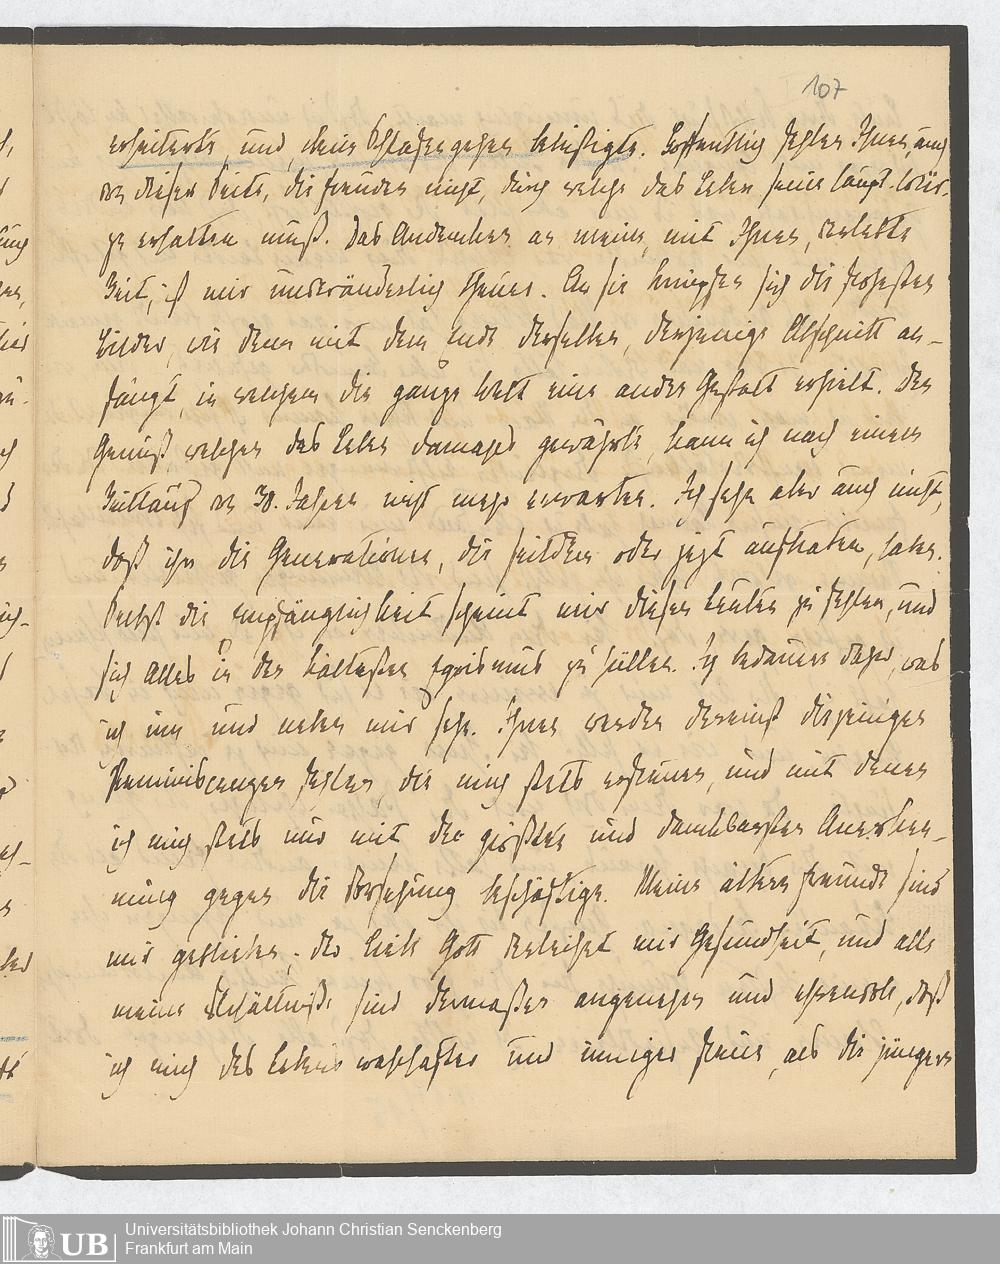 107
erheiterte, und, beim Schlafengehen beleißigte. Hoffentlich fehlen Ihnen, auch
von dieser Seite, die Freuden nicht, durch welche das Leben seine Haupt-Wür-
ze erhalten muß. Das Andencken an meine, mit Ihnen, verlebte
Zeit, ist mir unveränderlich theuer. An sie knüpfen sich die frohesten
Bilder, wie denn mit dem Ende derselben, derjenige Abschnitt an-
fängt, in welchem die ganze Welt eine andre Gestalt erhielt. Den
Genuß, welchen das Leben damahls gewährte, kann ich nach einem
Zeitlauf von 30. Jahren nicht mehr erwarten. Ich sehe aber auch nicht,
daß ihn die Generationen, die seitdem oder jezt auftraten, haben.
Selbst die Empfänglichkeit scheint mir diesen Leuten zu fehlen, und
sich Alles in den kältesten Egoismus zu hüllen. Ich bedauere daher, was
ich um und neben mir sehe. Ihnen werden dereinst diejenigen
Reminiscenzen fehlen, die mich stets erfreuen, und mit denen
ich mich stets nur mit der größten und danckbarsten Anerken-
nung gegen die Vorsehung beschäftige. Meine ältern Freunde sind
mir geblieben; der liebe Gott verleihet mir Gesundheit, und alle
meine Verhältniße sind dermaßen angenehm und ehrenvoll, daß
ich mich des Lebens wahrhafter und inniger freue, als die jüngern
UB
Universitätsbibliothek Johann Christian Senckenberg
Frankfurt am Main